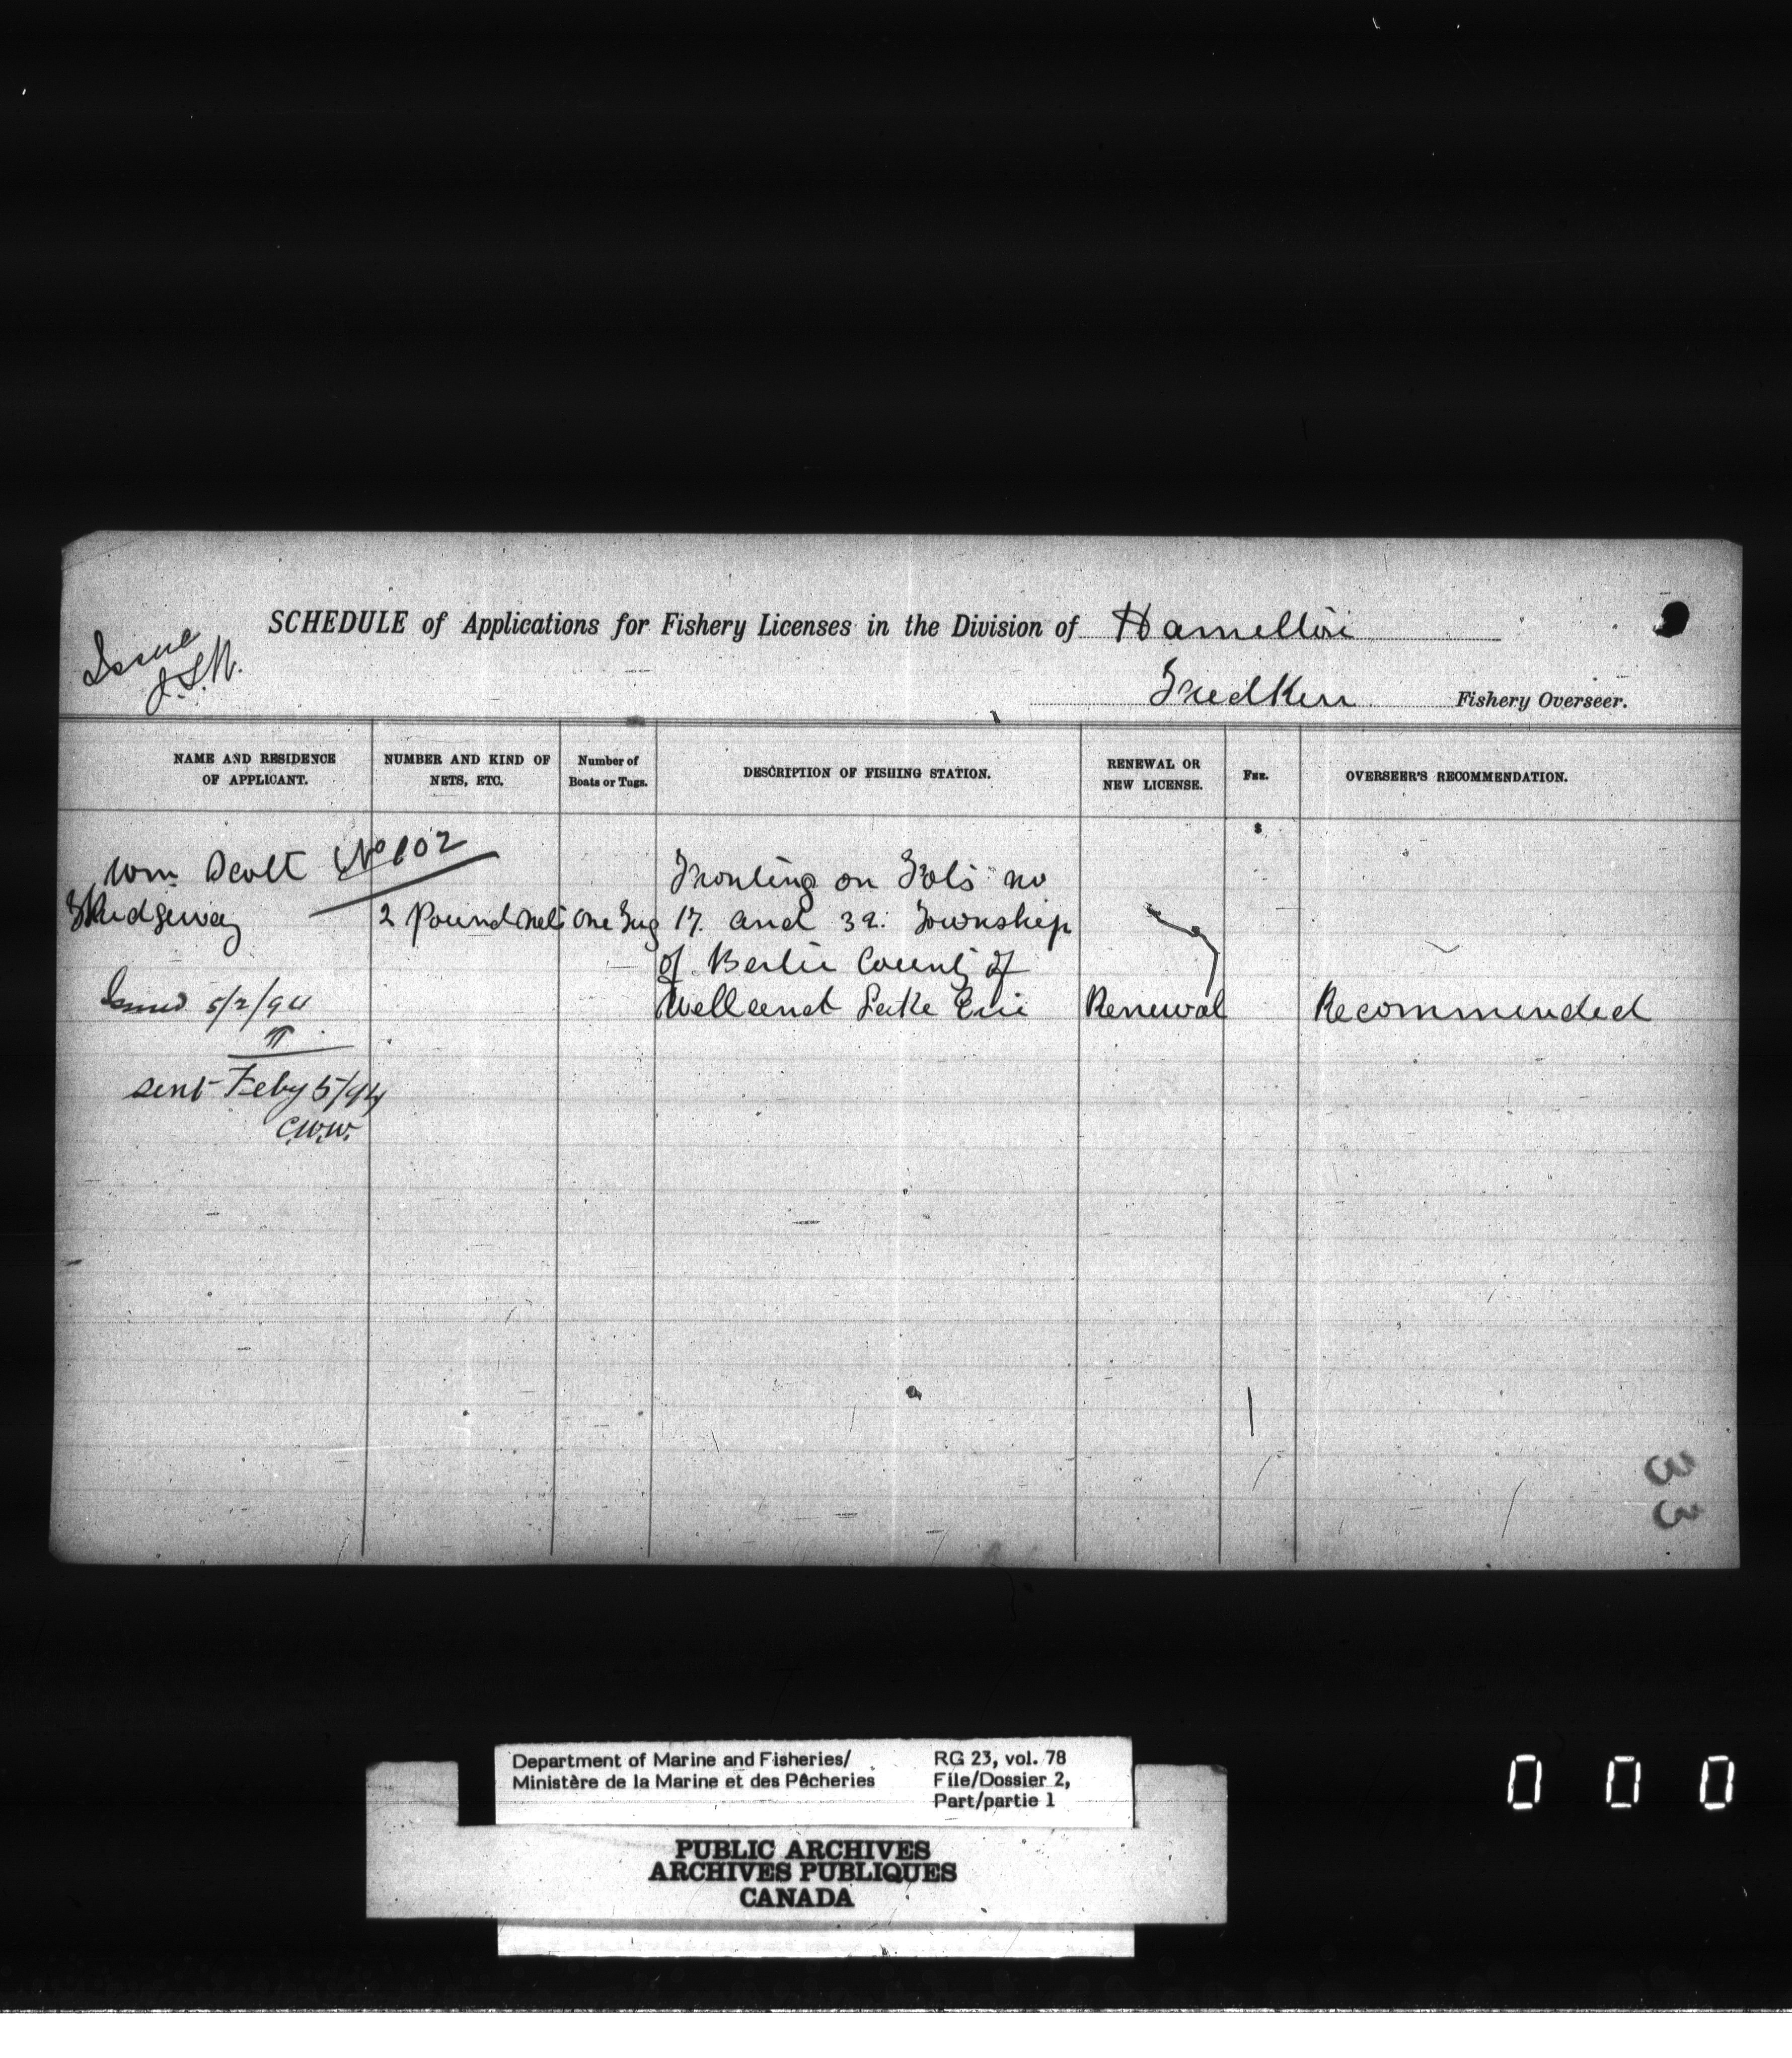 Issue
SCHEDULE of Applications for Fishery Licenses in the Division of Hamilton
Fred Kerr Fishery Overseer.
NAME AND RESIDENCE OF APPLICANT.
NUMBER AND KIND OF NETS, ETC.
Number of Boats or Tugs.
DESCRIPTION OF FISHING STATION.
RENEWAL OR NEW LICENSE.
FEE.
OVERSEER'S RECOMMENDATION.
$
Wm. Scott No 102
Ridgeway
2 Pound nets
One Tug
Fronting on Lots no
17. and 32. Township
of Bertie County of
Welland Lake Erie
Renewal
Recommended
Issued 5/2/94
sent Feby 5/94
C.W.W.
33
Department of Marine and Fisheries/
Ministère de la Marine et des Pêcheries
RG 23, vol. 78
File/Dossier 2,
Part/partie 1
PUBLIC ARCHIVES
ARCHIVES PUBLIQUES
CANADA
0 0 0